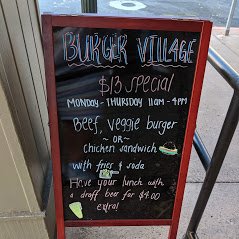 BURGER VILLAGE
$13 SPECIAL
MONDAY - THURSDAY 11AM - 4PM
Beef, Veggie burger
~ OR ~
chicken sandwich
with fries & soda
Have your lunch with
a draft beer for $4.00
extra!